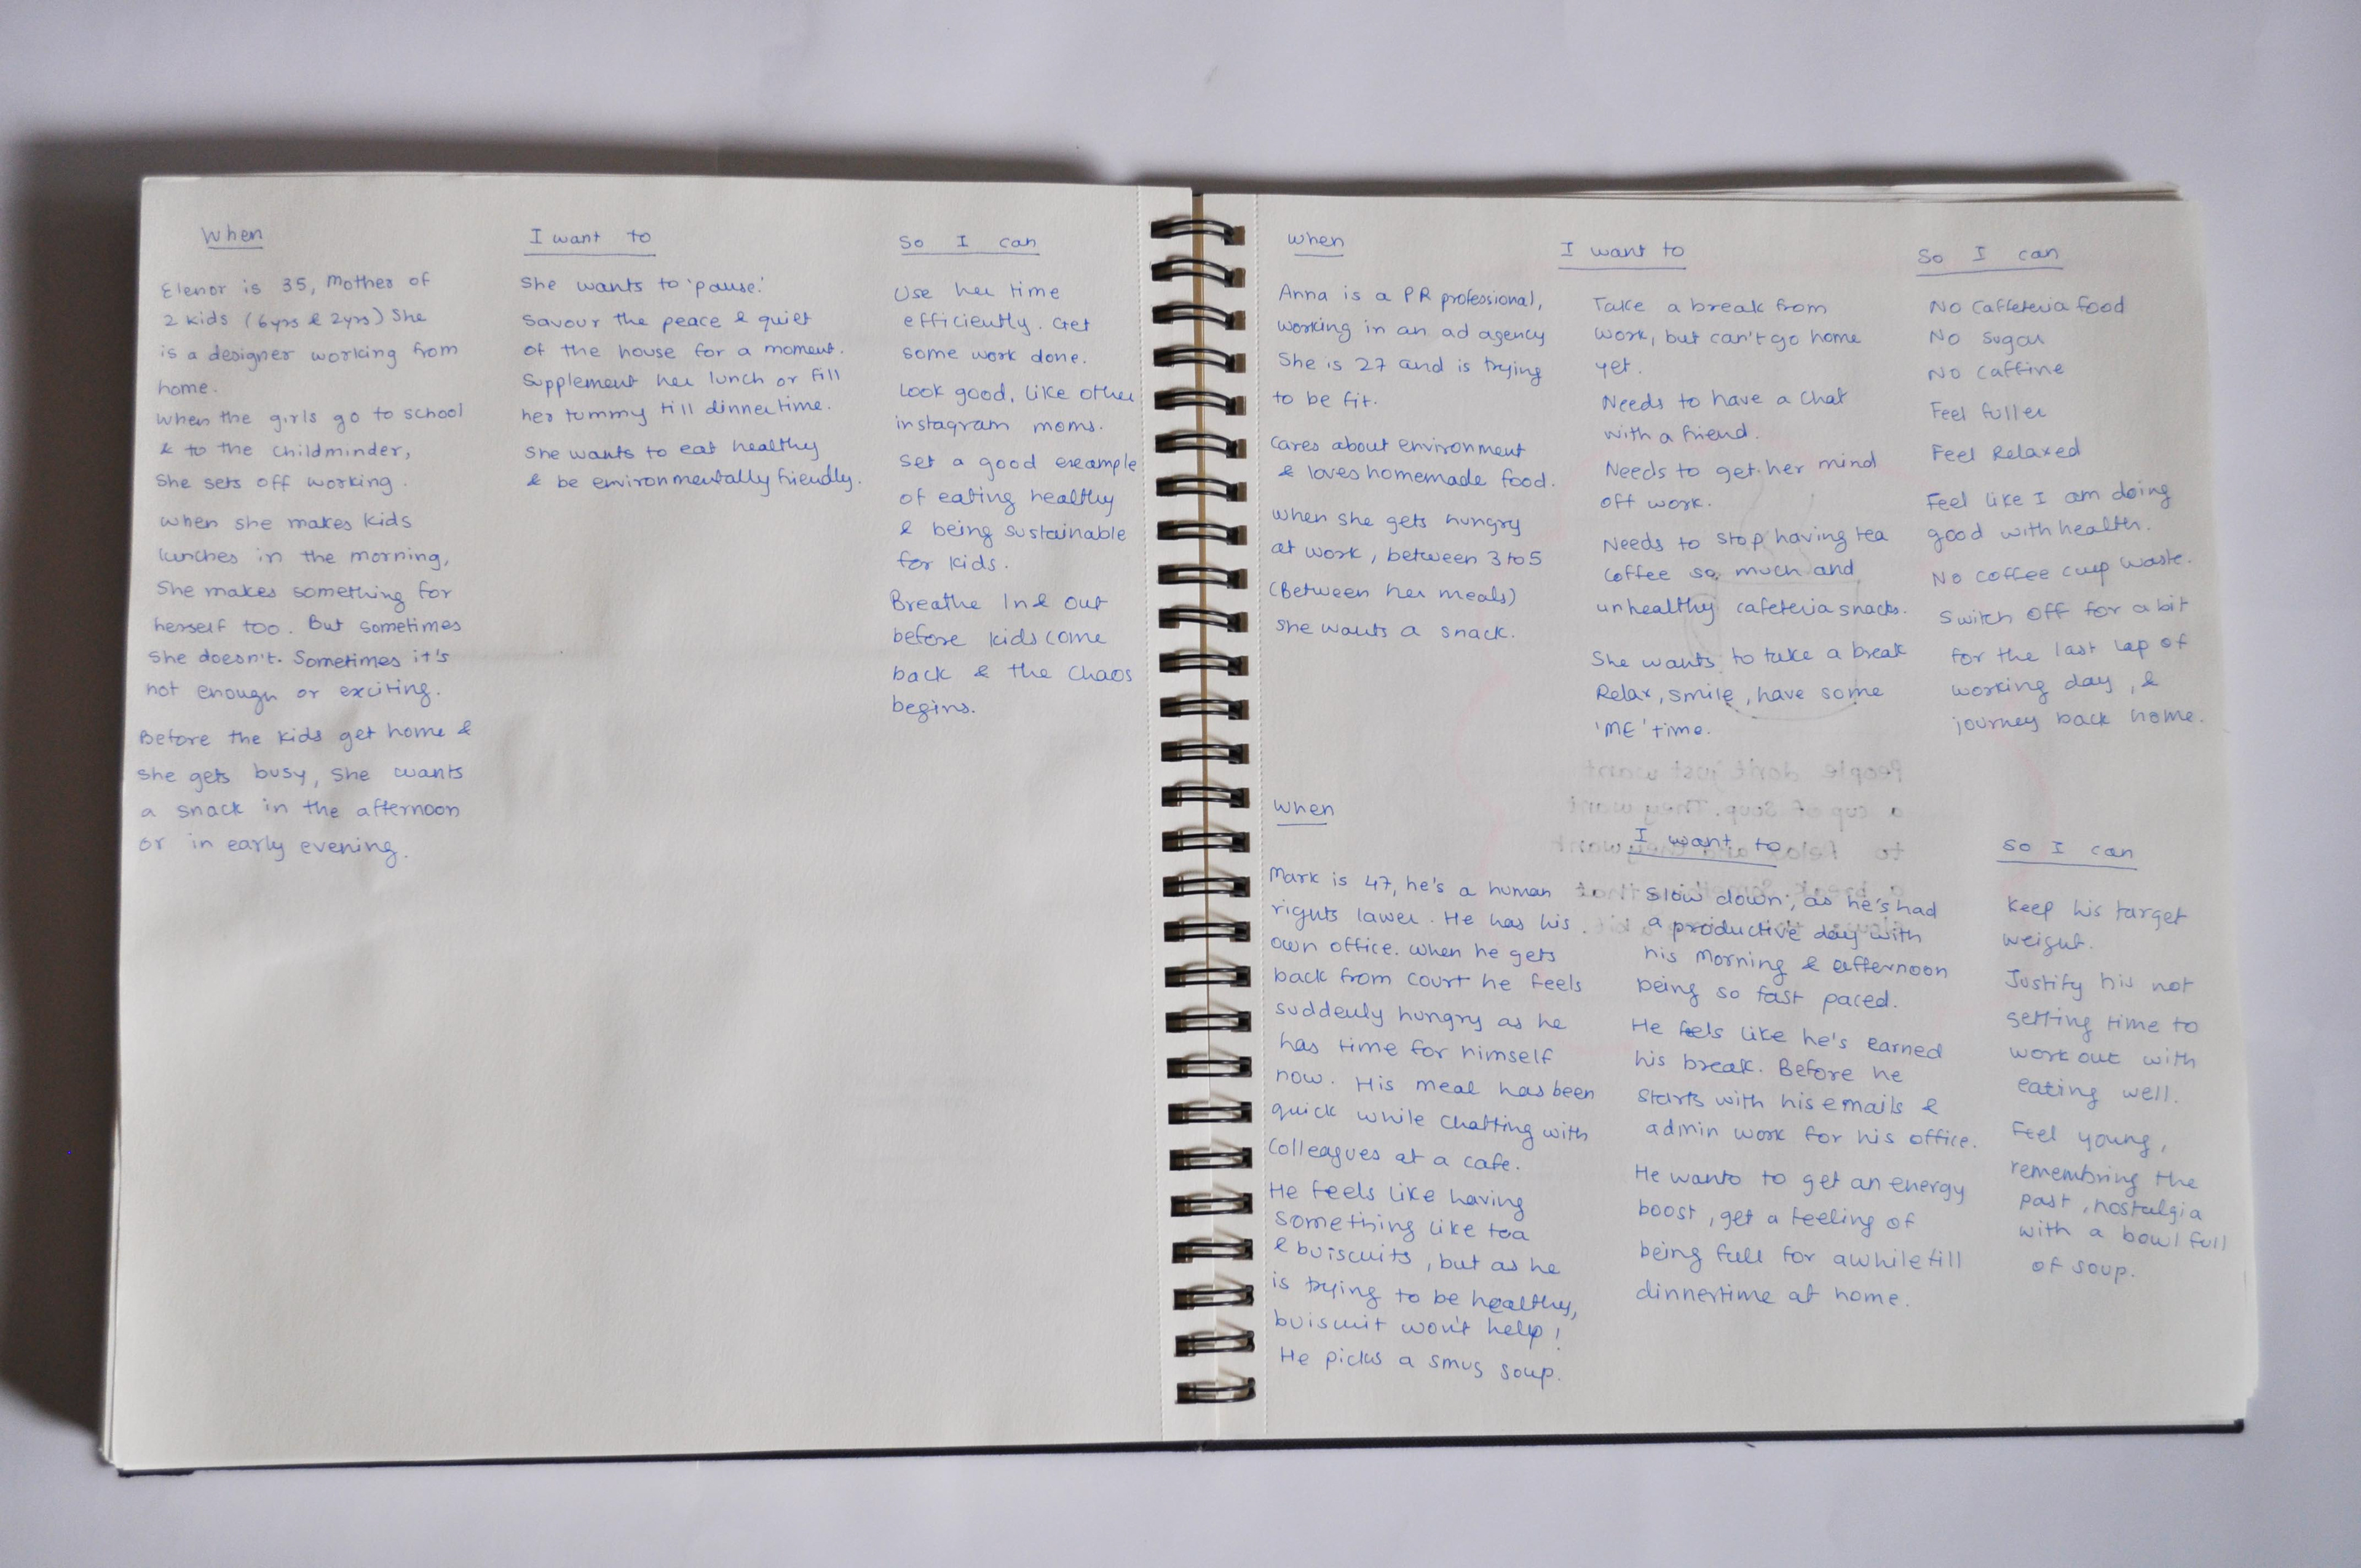 When
Elenor is 35, Mother of
2 kids (6yrs & 2yrs) She
is a designer working from
home.
When the girls go to school
& to the childminder,
She sets off working.
When she makes kids
lunches in the morning,
She makes something for
herself too. But sometimes
She doesn't. Sometimes it's
not enough or exciting.
Before the kids get home &
she gets busy, she wants
a snack in the afternoon
or in early evening.
I want to
She wants to 'pause.'
Savour the peace & quiet
of the house for a moment.
Supplement her lunch or fill
her tummy till dinnertime.
She wants to eat healthy
& be environmentally friendly.
So I can
Use her time
efficiently. Get
some work done.
Look good, like other
instagram moms.
Set a good example
of eating healthy
& being sustainable
for kids.
Breathe In & Out
before kids come
back & the chaos
begins.
When
Anna is a PR professional,
working in an ad agency
She is 27 and is trying
to be fit.
Cares about environment
& loves homemade food.
When she gets hungry
at work, between 3 to 5
(Between her meals)
she wants a snack.
I want to
Take a break from
work, but can't go home
yet.
Needs to have a chat
with a friend.
Needs to get her mind
off work.
Needs to stop having tea
coffee so much and
unhealthy cafeteria snacks.
She wants to take a break
Relax, smile, have some
'ME' time.
So I can
No Caffeteria food
No sugar
No caffine
Feel fuller
Feel Relaxed
Feel like I am doing
good with health.
No coffee cup waste.
Switch off for a bit
for the last lap of
working day, &
journey back home.
When
Mark is 47, he's a human
rights lawer. He has his
own office. When he gets
back from court he feels
suddenly hungry as he
has time for himself
now. His meal has been
quick while chatting with
colleagues at a cafe.
He feels like having
something like tea
& buiscuits, but as he
is trying to be healthy,
buiscuit won't help!
He picks a smug soup.
I want to
Slow down, as he's had
a productive day with
his morning & afternoon
being so fast paced.
He feels like he's earned
his break. Before he
starts with his emails &
admin work for his office.
He wants to get an energy
boost, get a feeling of
being full for awhile till
dinnertime at home.
So I can
Keep his target
weight.
Justify his not
getting time to
work out with
eating well.
Feel young,
remembring the
past, nostalgia
with a bowl full
of soup.
People don't just want
a cup of soup. They want
to relax and they want